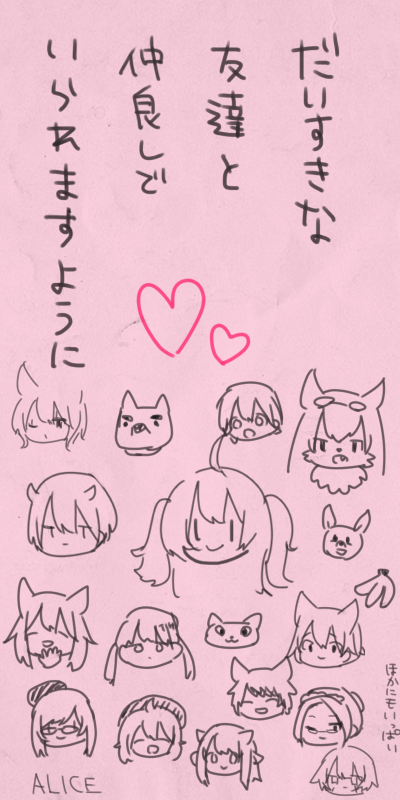 だいすきな
友達と
仲良しで
いられますように
ほかにもいっぱい
ALICE